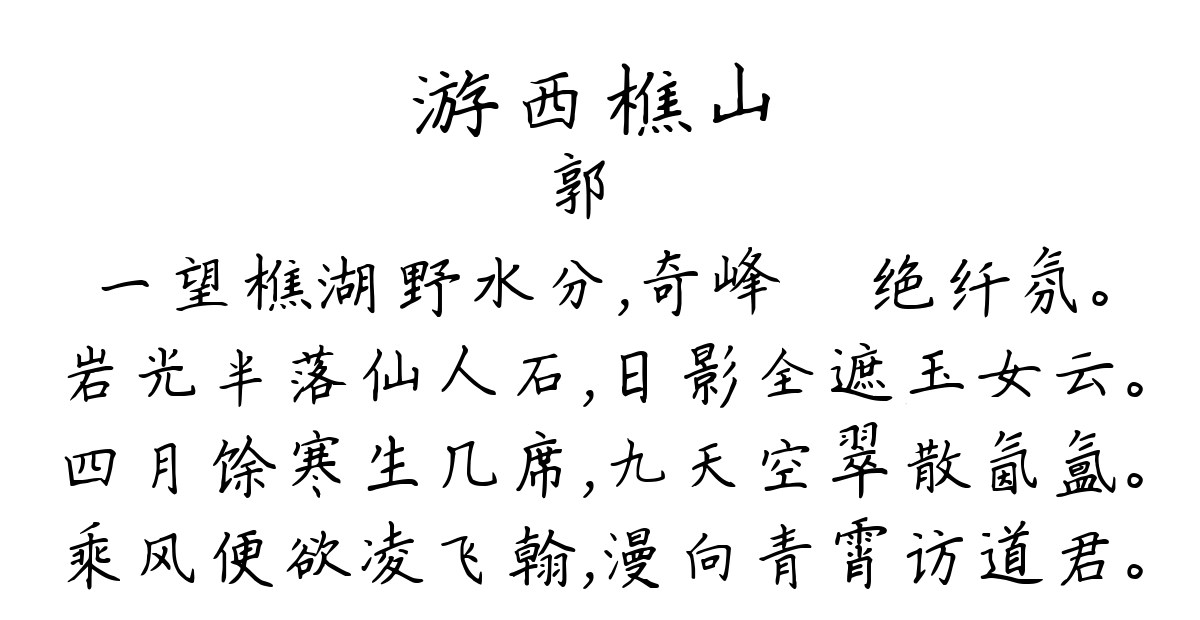 游西樵山
郭
一望樵湖野水分,奇峰 绝纤氛。
岩光半落仙人石,日影全遮玉女云。
四月馀寒生几席,九天空翠散氤氲。
乘风便欲凌飞翰,漫向青霄访道君。